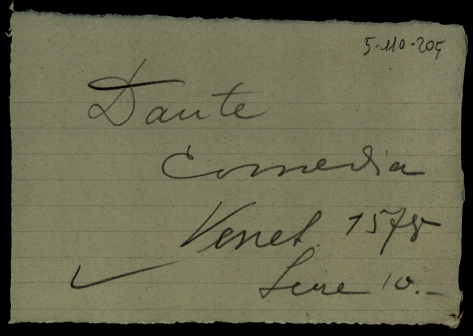 5-110-205
Dante
Comedia
Venet. 1578
Lire 10.-